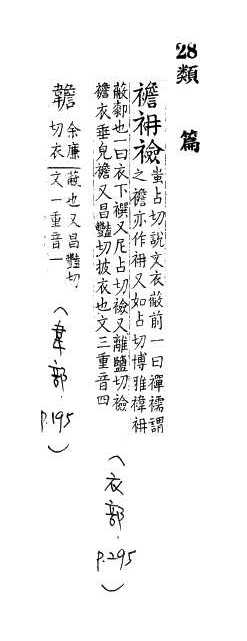 28類
篇
襜䄡襝蚩占切說文衣蔽前一曰襌襦謂
之襜亦作䄡又如占切博雅褘䄡
蔽䣛也一曰衣下襈又尼占切襝又離鹽切襝
襜衣垂皃襜又昌豔切披衣也文三重音四
(衣部.
P.295
)
韂余廉切蔽也又昌豔切
衣文一重音一
(韋部.
P.195
)